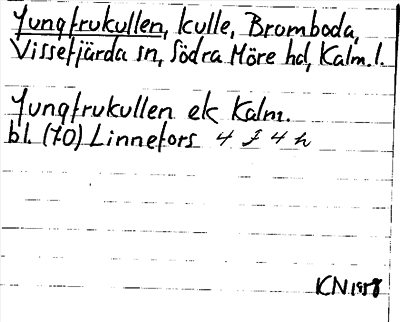 Jungfrukullen, kulle, Bromboda,
Vissefjärda sn, Södra Möre hd, Kalm. l.
Jungfrukullen ek Kalm.
bl. (70) Linnefors 4 J 4 h
KN 1958